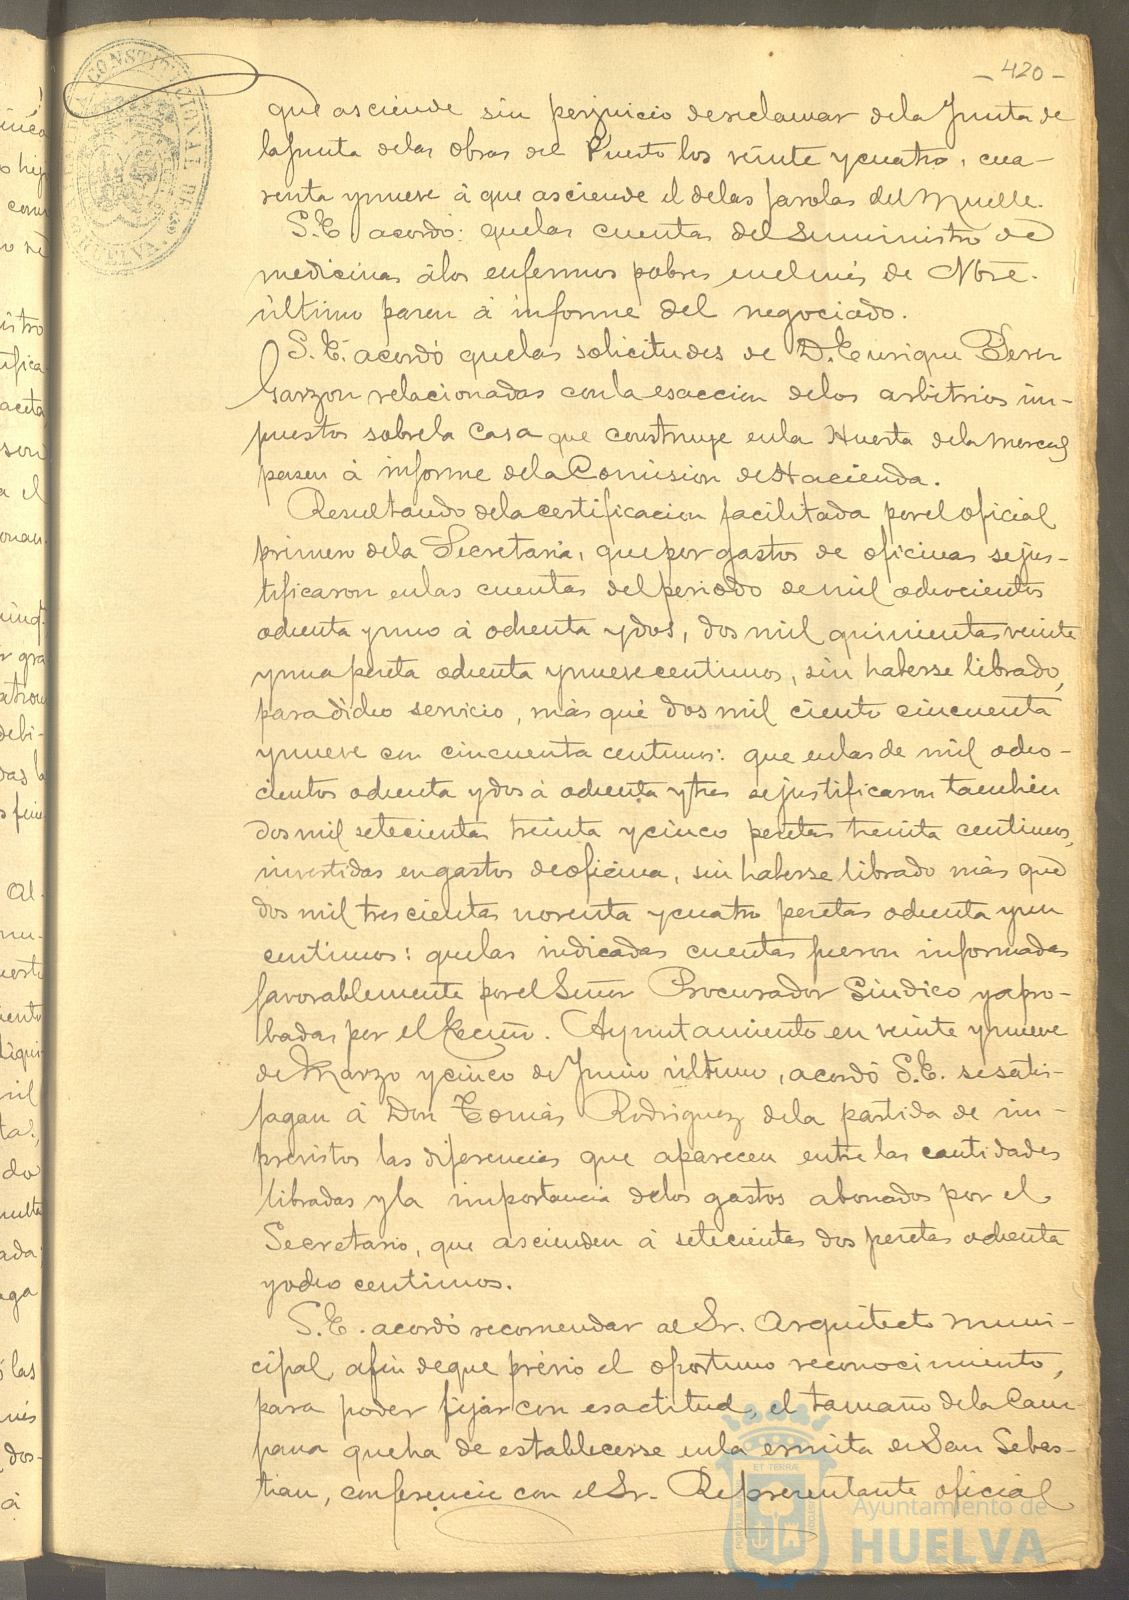 - 420 -
que asciende sin perjuicio de reclamar de la Junta de
la Junta de las obras del Puerto los veinte y cuatro, cua-
renta y nueve á que asciende el de las farolas del Muelle.
S.E. acordó: que las cuentas del Suministro de
medicinas á los enfermos pobres en el mes de Nbre.
último pasen á informe del negociado.
S.E. acordó que las solicitudes de D. Enrique Perez
Garzon relacionadas con la esaccion de los arbitrios im-
puestos sobre la Casa que construye en la Huerta de la Merced
pasen á informe de la Comision de Hacienda.
Resultando de la certificacion facilitada por el oficial
primero de la Secretaria, que por gastos de oficinas se jus-
tificaron en las cuentas del periodo de mil ochocientos
ochenta y uno á ochenta y dos, dos mil quinientas veinte
y una peseta ochenta y nueve centimos, sin haberse librado,
para dicho servicio, más que dos mil ciento cincuenta
y nueve con cincuenta centimos: que en las de mil ocho-
cientos ochenta y dos á ochenta y tres se justificaron tambien
dos mil setecientas treinta y cinco pesetas treinta centimos,
invertidas en gastos de oficina, sin haberse librado más que
dos mil trescientas noventa y cuatro pesetas ochenta y un
centimos: que las indicadas cuentas fueron informadas
favorablemente por el Señor Procurador Sindico y apro-
badas por el Excmo. Ayuntamiento en veinte y nueve
de Marzo y cinco de Junio último, acordó S.E. se satis-
fagan á Don Tomás Rodriguez de la partida de im-
previstos las diferencias que aparecen entre las cantidades
libradas y la importancia de los gastos abonados por el
Secretario, que ascienden á setecientas dos pesetas ochenta
y ocho centimos.
S.E. acordó recomendar al Sr. Arquitecto muni-
cipal, afin de que previo el oportuno reconocimiento,
para poder fijar con esactitud, el tamaño de la Cam-
pana que ha de establecerse en la ermita de San Sebas-
tian, conferencie con el Sr. Representante oficial
Ayuntamiento de
HUELVA